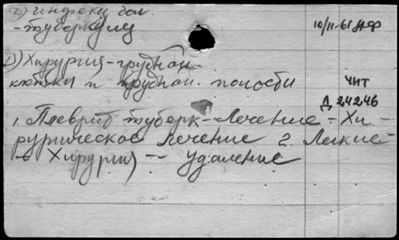 1) инфекц. бол.
- туберкулез
10/11-61 МФ
2) Хирургия - грудной
клетки и грудной полости
ЧИТ
Д 24246
1. Плеврит туберк. - Лечение - Хи-
рургическое лечение 2. Легкие -
- Хирургия -- Удаление